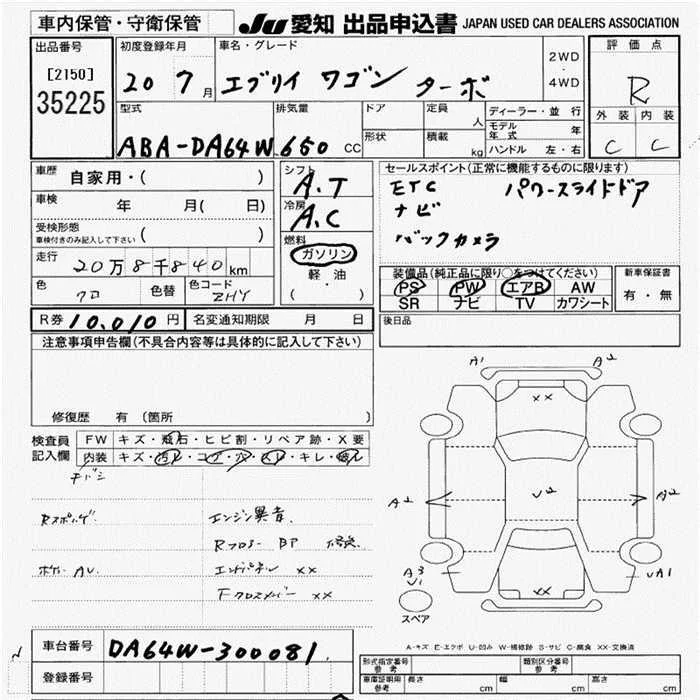 車内保管・守衛保管
JU 愛知 出品申込書 JAPAN USED CAR DEALERS ASSOCIATION
出品番号
[2150]
35225
初度登録年月
20 7 月
車名・グレード
エブリイ ワゴン ターボ
2WD
・
4WD
評価点
R
外装 内装
C C
型式
ABA-DA64W
排気量
650 CC
ドア
形状
定員 人
積載 kg
ディーラー・並行
モデル年式 年
ハンドル 左・右
車歴
自家用・( )
車検
年 月( 日)
受検形態
車検付きのみ記入して下さい
( )
走行
20万8千840km
色
クロ
色替
色コード
ZHY
シフト
A.T
冷房
A.C
燃料
ガソリン
軽油
( ・ )
セールスポイント(正常に機能するものに限ります)
ETC パワースライドドア
ナビ
バックカメラ
装備品(純正品に限り○をつけてください)
PS PW エアB AW
SR ナビ TV カワシート
新車保証書
有・無
R券 10,010 円
名変通知期限 月 日
後日品
注意事項申告欄(不具合内容等は具体的に記入して下さい)
修復歴 有 (箇所
検査員
記入欄
FW キズ・飛石・ヒビ割・リペア跡・X要
内装 キズ・汚レ・コゲ・穴・スレ・キレ・破レ
エンジン異音.
Rフロアー
エンドパネル XX
Fクロスメンバー XX
A1 A2
XX
A2 U2 A2
A3
U1
UA1
XX
スペア
A-キズ E-エクボ U-凹み W-補修跡 S-サビ C-腐食 XX-交換済
車台番号
DA64W-300081
登録番号
形式指定番号
参考
類別区分番号
参考
車庫証明用
参考
長さ cm 幅 cm 高さ cm